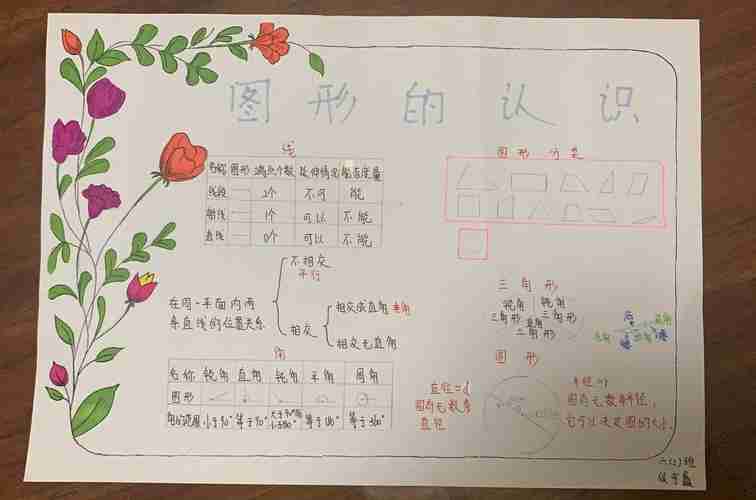 图形的认识
线
名称 图形 端点个数 延伸情况 能否度量
线段 2个 不可 能
射线 1个 可以 不能
直线 0个 可以 不能
图形分类
在同一平面内两
条直线的位置关系
不相交
平行
相交
相交成直角 垂直
相交无直角
角
名称 锐角 直角 钝角 平角 周角
图形
角的范围 小于90° 等于90° 大于90°而小于180° 等于180° 等于360°
三角形
锐角
三角形
钝角
三角形
直角
三角形
圆形
直径=d
圆有无数条
直径
半径=r
圆有无数条半径,
它可以决定圆的大小.
六(2)班